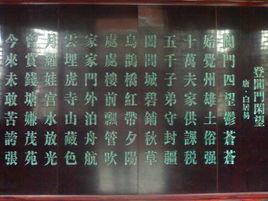 登閶門閑望
唐·白居易
閶門四望鬱蒼蒼
始覺州雄土俗强
十萬夫家供課稅
五千子弟守封疆
闔閭城碧鋪秋草
烏鵲橋紅帶夕陽
處處樓前飄管吹
家家門外泊舟航
雲埋虎寺山藏色
月耀娃宮水放光
曾賞錢塘嫌茂苑
今來未敢苦誇張